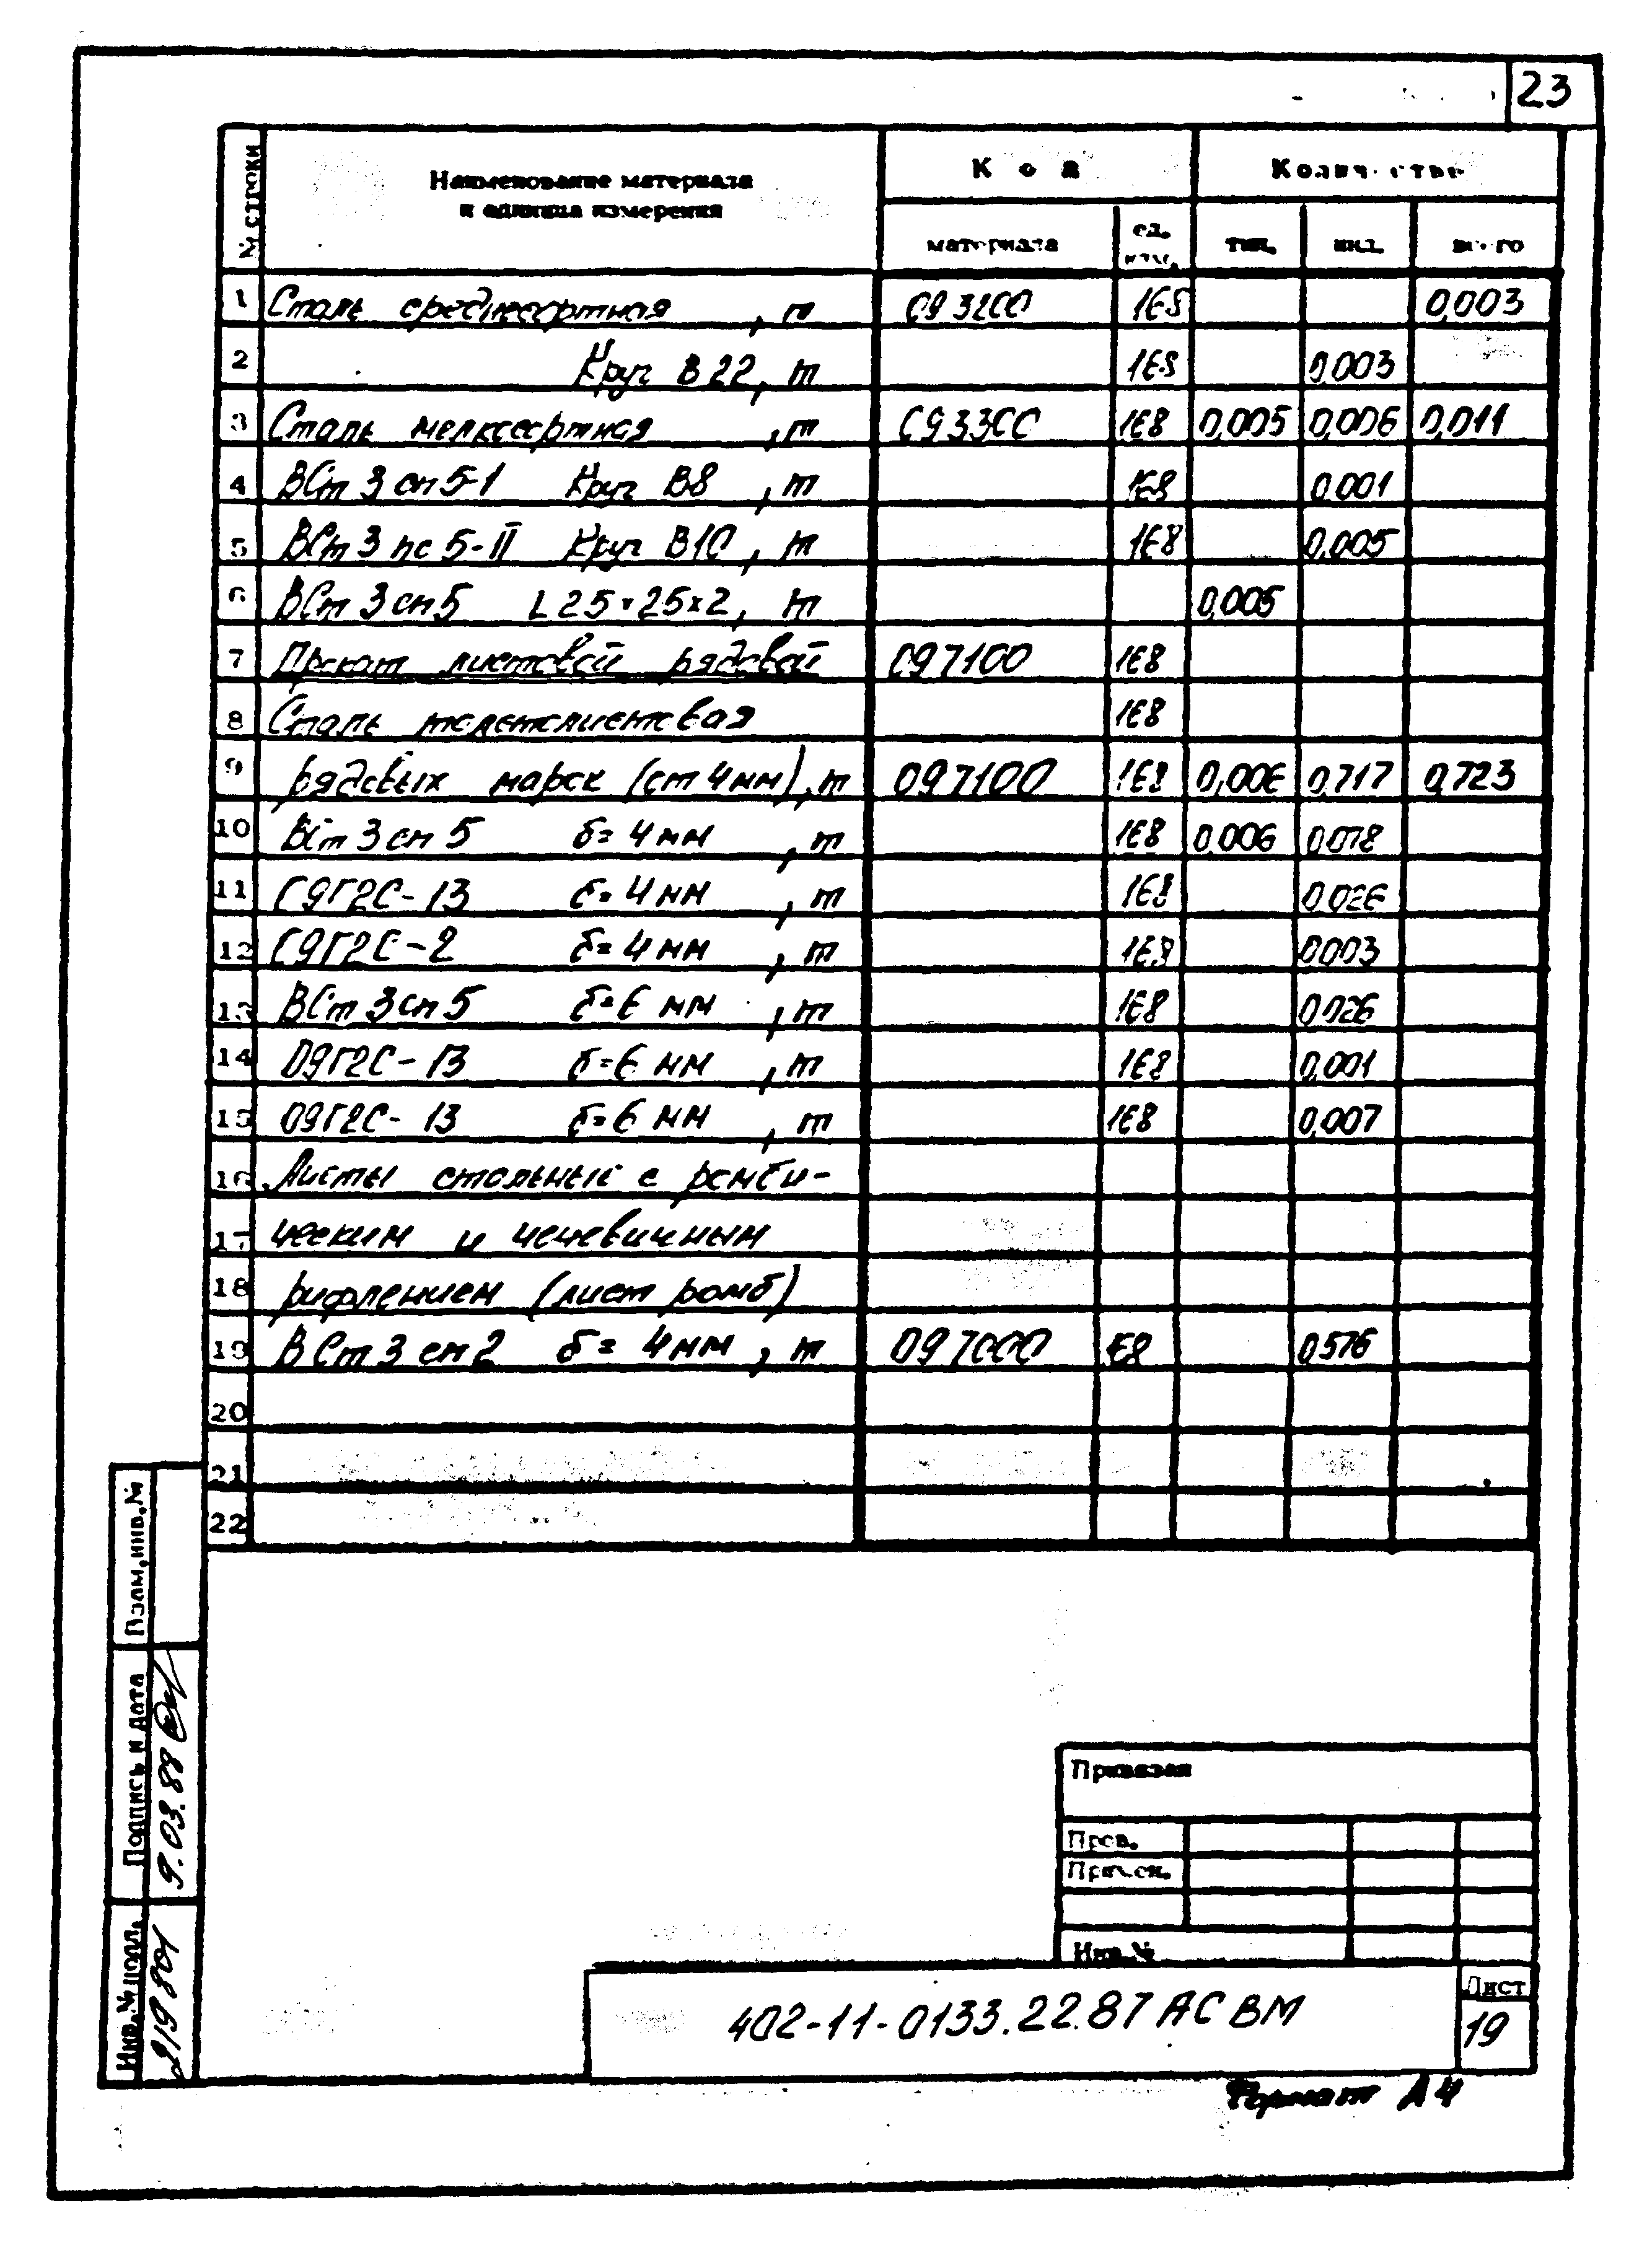 23
№ строки
Наименование материала
и единица измерения
Код
Количество
материала
ед. изм.
тип.
инд.
всего
1 Сталь среднесортная , т 093200 1Е8 0,003
2 Круг В22, т 1Е8 0,003
3 Сталь мелкосортная , т 093300 1Е8 0,005 0,006 0,011
4 ВСт3сп5-1 Круг В8 , т 1Е8 0.001
5 ВСт3пс5-II Круг В10, т 1Е8 0,005
6 ВСт3сп5 L25×25×2, т 0,005
7 Прокат листовой рядовой 097100 1Е8
8 Сталь толстолистовая 1Е8
9 рядовых марок (от 4мм), т 097100 1Е8 0,006 0,717 0,723
10 ВСт3сп5 б=4мм , т 1Е8 0,006 0,078
11 09Г2С-13 б=4мм , т 1Е8 0,026
12 09Г2С-2 б=4мм , т 1Е8 0,003
13 ВСт3сп5 б=6мм , т 1Е8 0,026
14 09Г2С-13 б=6мм , т 1Е8 0,001
15 09Г2С-13 б=6мм , т 1Е8 0,007
16 Листы стальные с ромби-
17 ческим и чечевичным
18 рифлением (лист ромб)
19 ВСт3сп2 б=4мм , т 097000 1Е8 0,576
20
21
22
Взам.инв.№
Подпись и дата
9.03.88
Инв.№подл.
219801
Привязан
Пров.
Инв.№
402-11-0133.22.87 АС ВМ
Лист
19
Формат А4